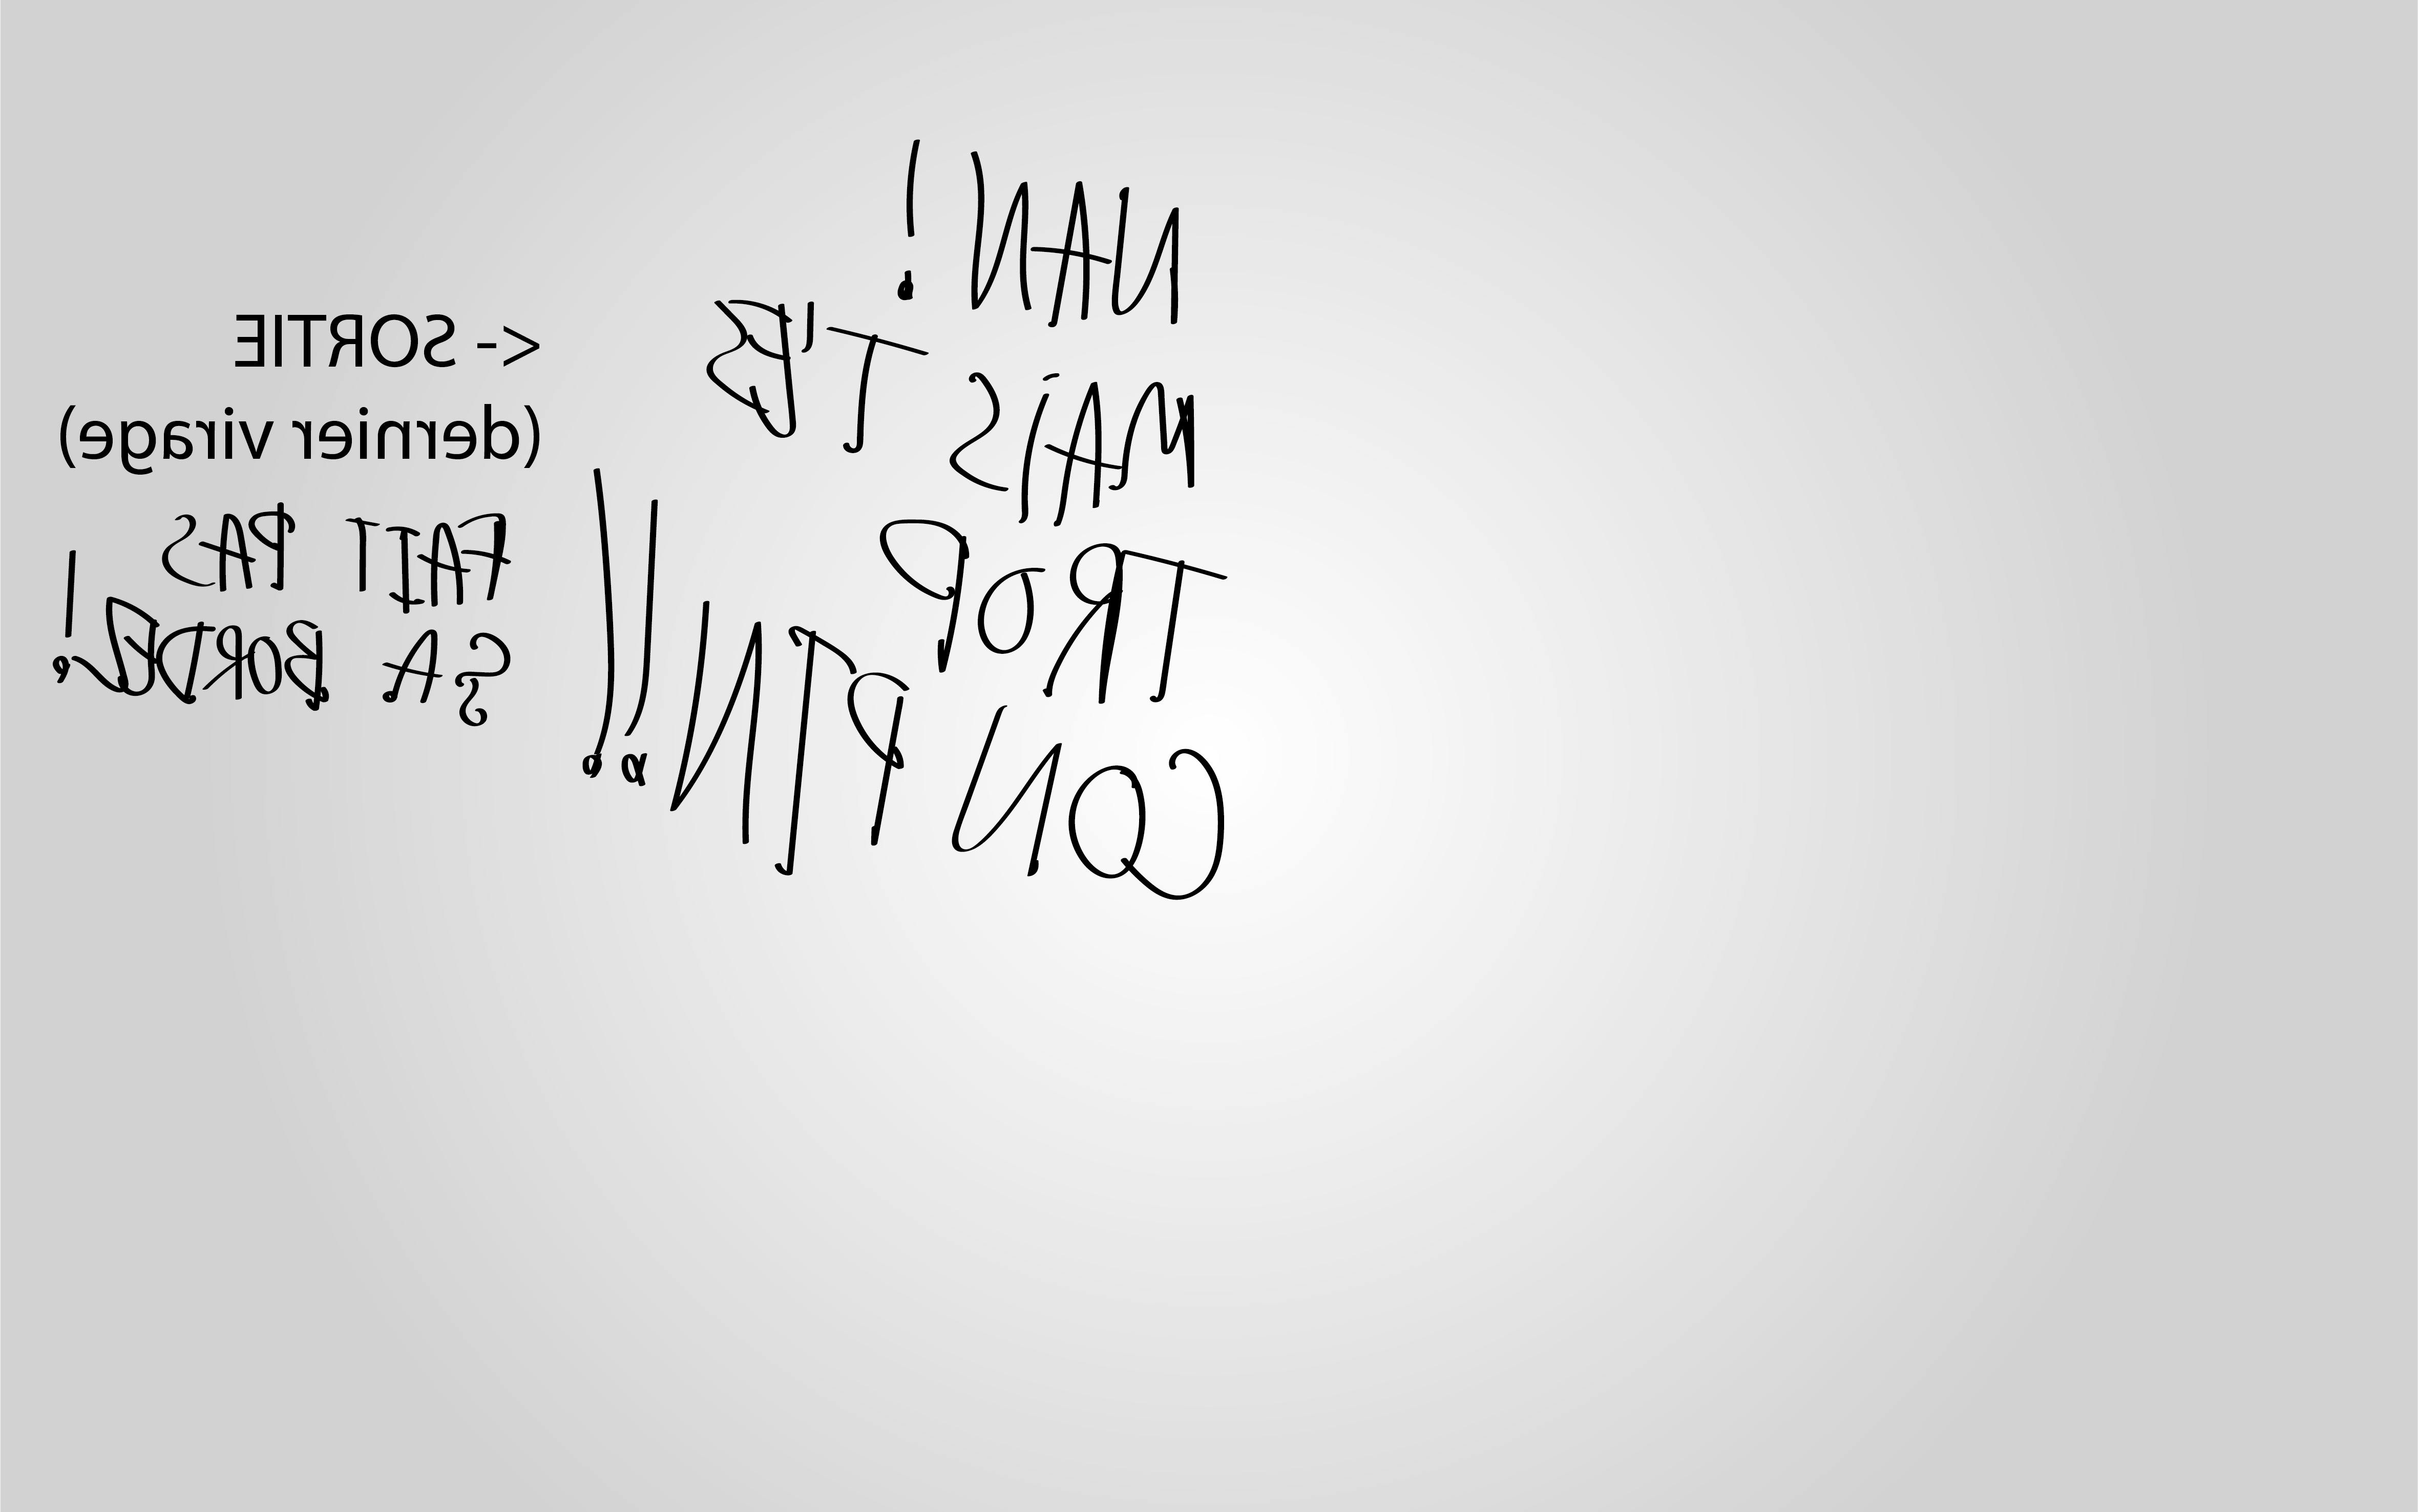 NAN !
MAIS T'ES
TROP
CON PTN !!
<- SORTIE
(dernier virage)
FAIT PAS
ÇA BORDEL !